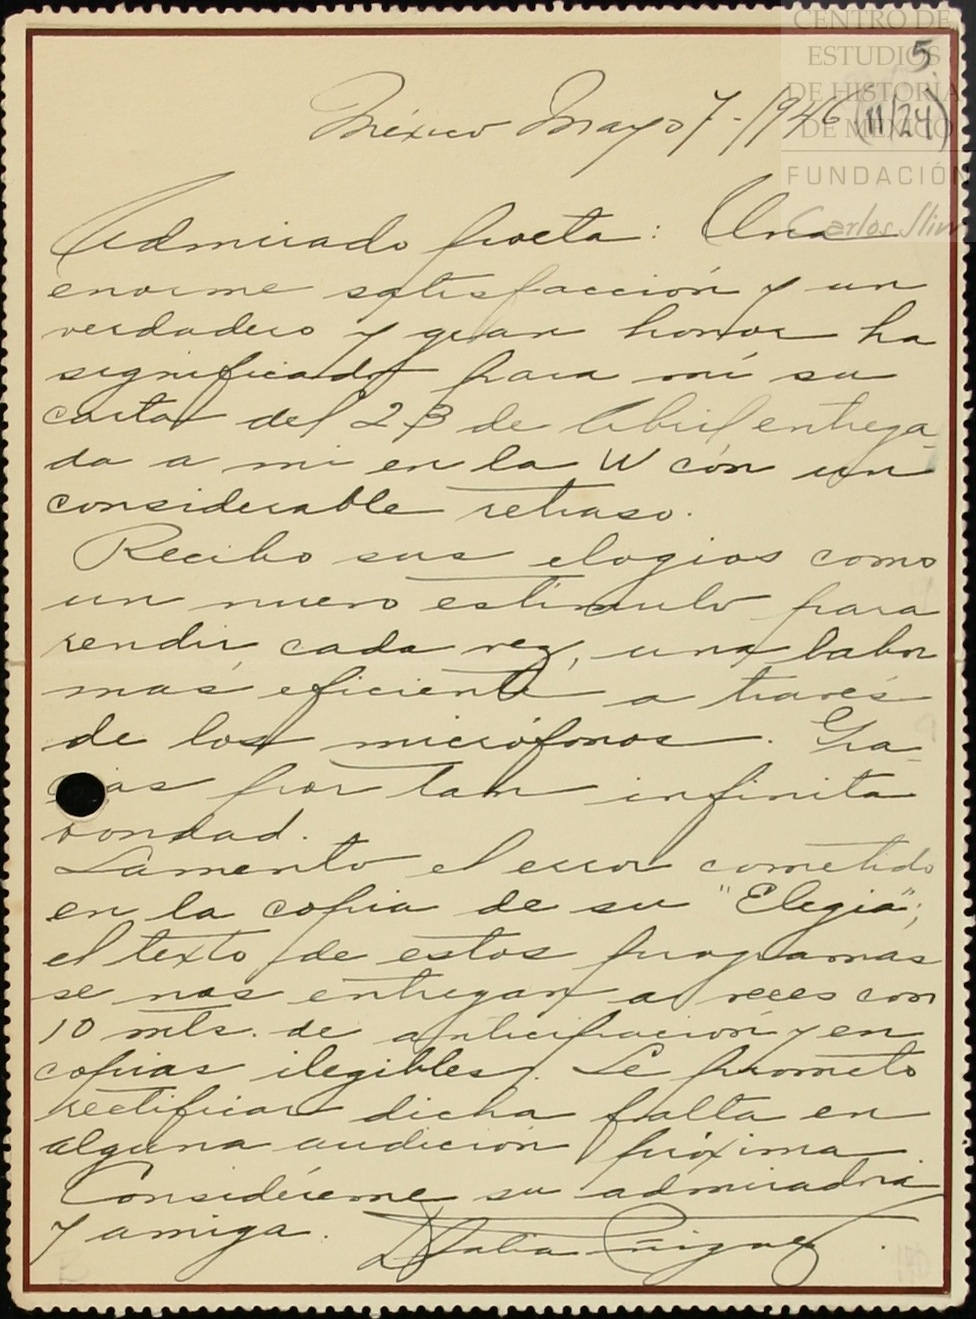 CENTRO DE
ESTUDIOS
DE HISTORIA
DE MÉXICO
FUNDACIÓN
Carlos Slim
5
(11/24)
México Mayo 7-1946
Admirado poeta: Una
enorme satisfacción y un
verdadero y gran honor ha
significado para mí su
carta del 23 de Abril entrega-
da a mi en la W con un
considerable retraso.
Recibo sus elogios como
un nuevo estímulo para
rendir, cada vez, una labor
más eficiente a través
de los micrófonos. Gra-
cias por tan infinita
bondad.
Lamento el error cometido
en la copia de su "Elegía";
el texto de estos programas
se nos entregan a veces con
10 mts. de anticipación y en
copias ilegibles. Le prometo
rectificar dicha falta en
alguna audición próxima
Considéreme su admiradora
y amiga. Dalia Íñiguez.